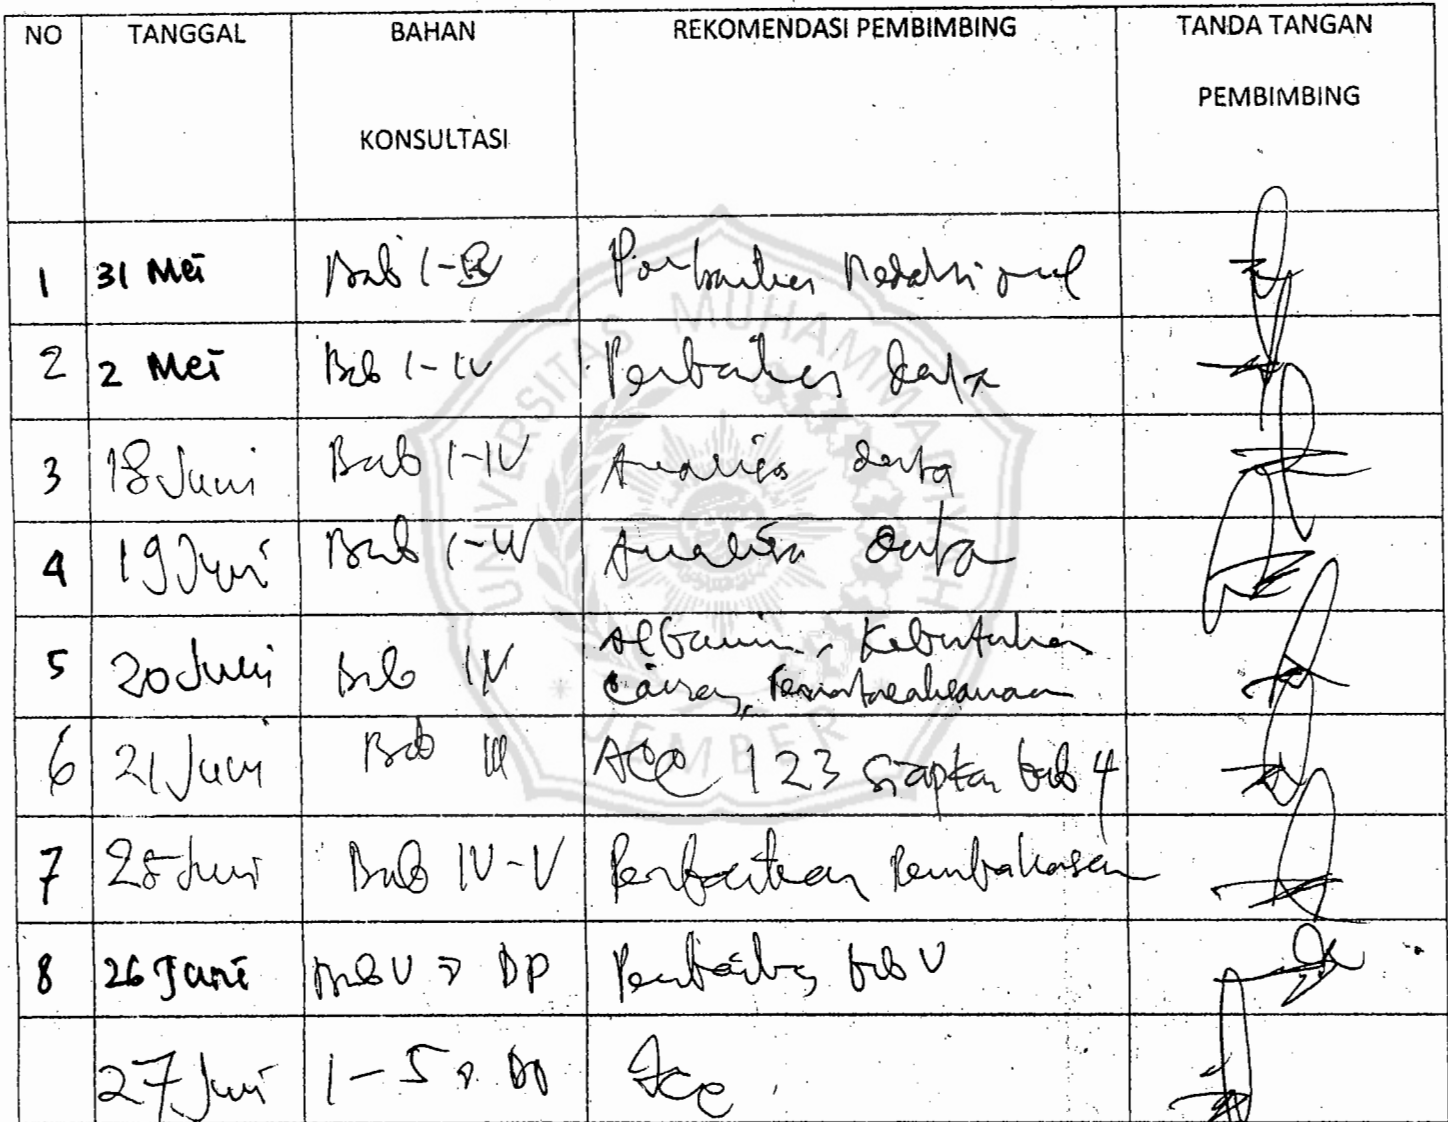 NO TANGGAL BAHAN KONSULTASI REKOMENDASI PEMBIMBING TANDA TANGAN PEMBIMBING
1 31 Mei Bab I- Perbaikan Redaksional
2 2 Mei Bab I-IV Perbaikan data
3 18 Juni Bab I-IV Analisa data
4 19 Juni Bab I-IV Analisa data
5 20 Juni Bab IV Albumin, Kebutuhan
Cairan, Penatalaksanaan
6 21 Juni Bab III Acc 1 2 3 siapkan bab 4
7 25 Juni Bab IV-V Perbaikan Pembahasan
8 26 Juni Bab V DP Perbaikan bab V
27 Juni 1-5 Acc
UNIVERSITAS MUHAMMADIYAH
JEMBER